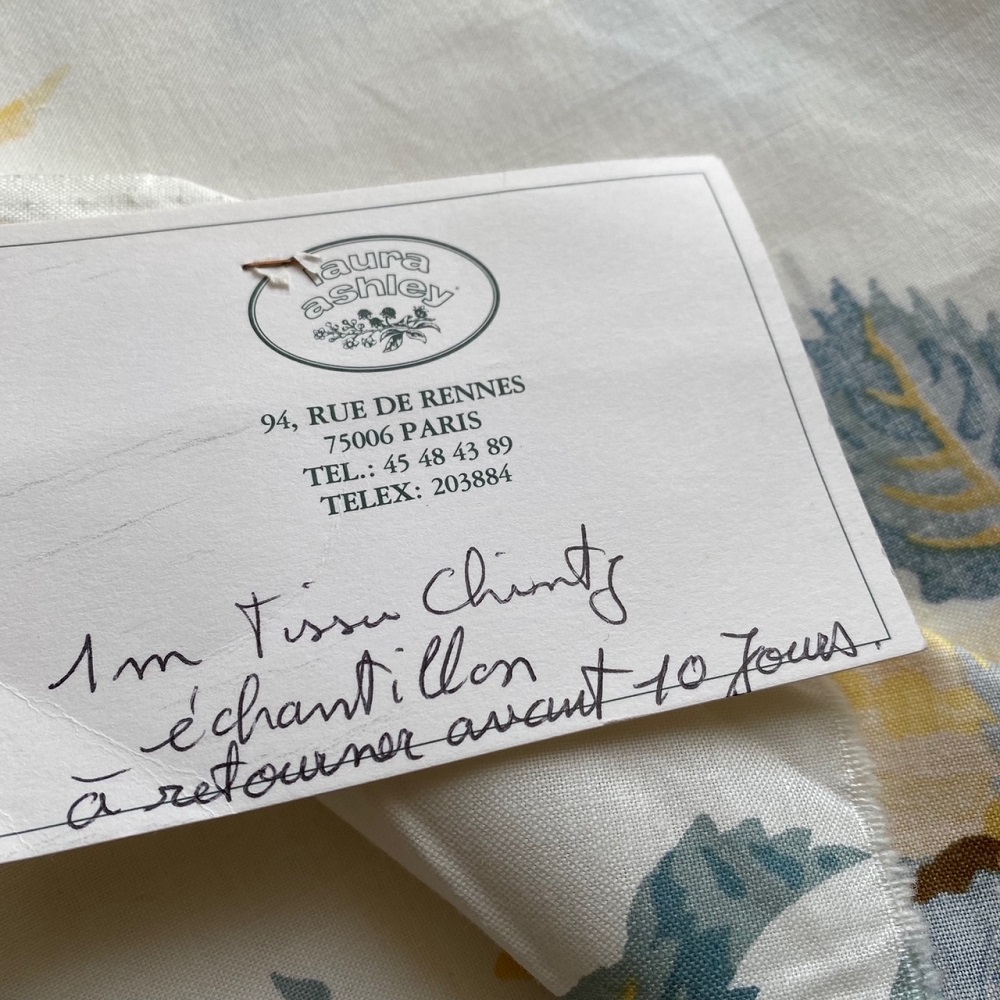 laura
ashley
94, RUE DE RENNES
75006 PARIS
TEL.: 45 48 43 89
TELEX: 203884
1m Tissu Chintz
échantillon
à retourner avant 10 Jours.